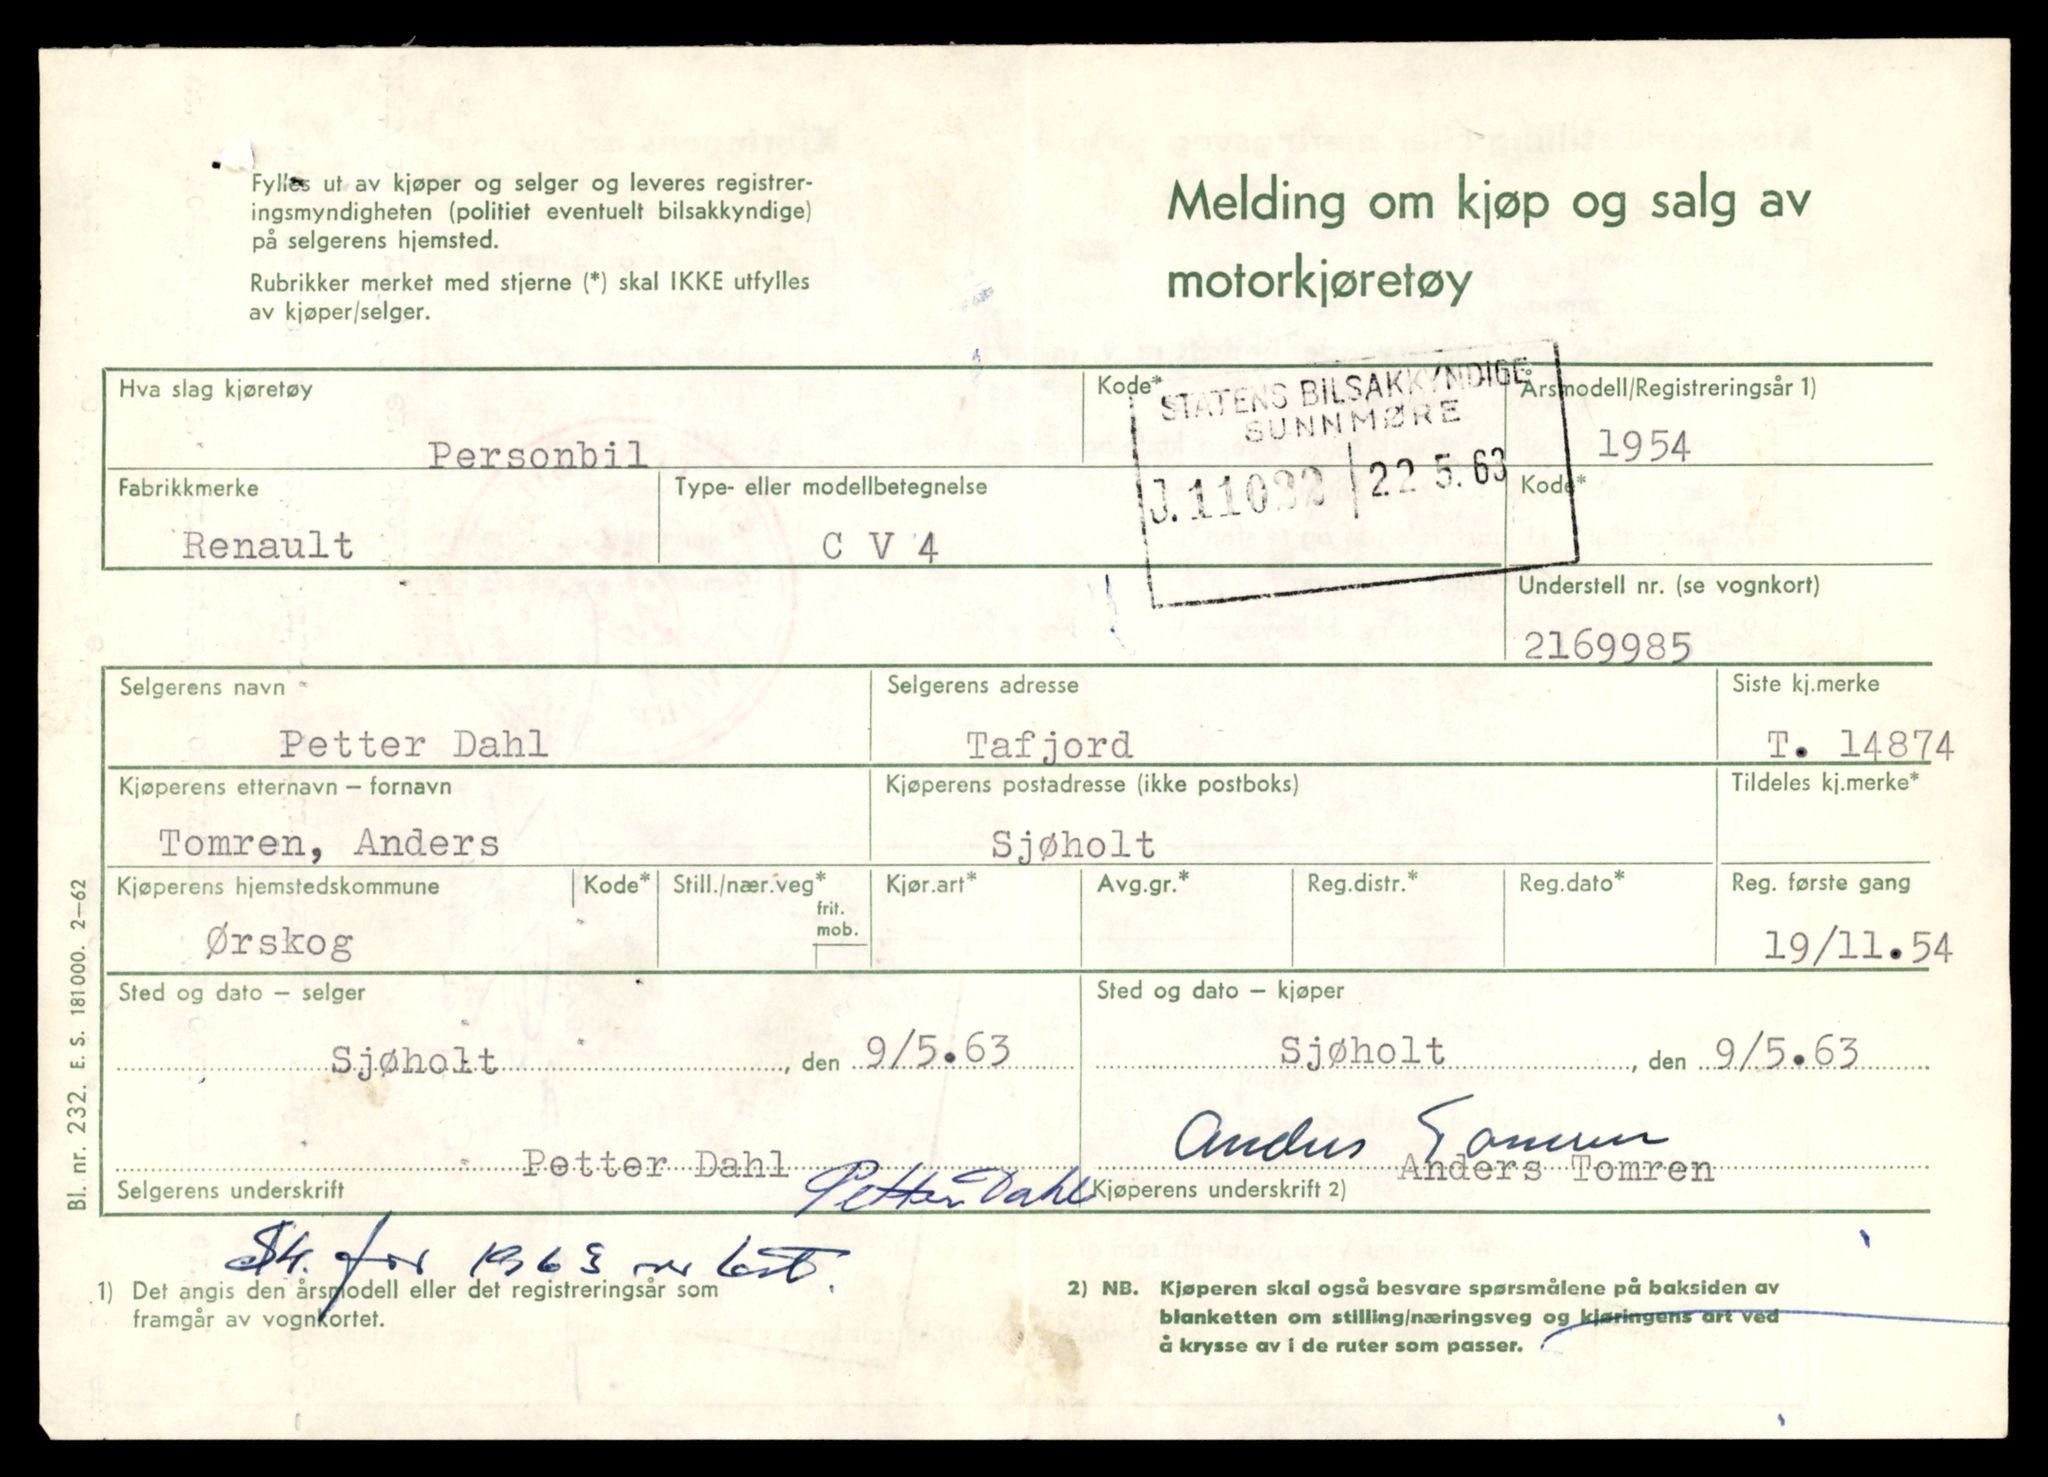 Fylles ut av kjøper og selger og leveres registrer-
ingsmyndigheten (politiet eventuelt bilsakkyndige)
på selgerens hjemsted.
Rubrikker merket med stjerne (*) skal IKKE utfylles
av kjøper/selger.
Melding om kjøp og salg av
motorkjøretøy
Hva slag kjøretøy
Kode*
Årsmodell/Registreringsår 1)
Personbil
1954
STATENS BILSAKKYNDIGE
SUNNMØRE
J. 11032 22.5.63
Fabrikkmerke
Type- eller modellbetegnelse
Kode*
Renault
C V 4
Understell nr. (se vognkort)
2169985
Selgerens navn
Selgerens adresse
Siste kj.merke
Petter Dahl
Tafjord
T. 14874
Kjøperens etternavn – fornavn
Kjøperens postadresse (ikke postboks)
Tildeles kj.merke*
Tomren, Anders
Sjøholt
Kjøperens hjemstedskommune
Kode*
Still./nær.veg*
frit.
mob.
Kjør.art*
Avg.gr.*
Reg.distr.*
Reg.dato*
Reg. første gang
Ørskog
19/11.54
Sted og dato – selger
Sted og dato – kjøper
Sjøholt, den 9/5.63
Sjøholt, den 9/5.63
Anders Tomren
Petter Dahl
Anders Tomren
Selgerens underskrift
Petter Dahl
Kjøperens underskrift 2)
for 1963
1) Det angis den årsmodell eller det registreringsår som
framgår av vognkortet.
2) NB. Kjøperen skal også besvare spørsmålene på baksiden av
blanketten om stilling/næringsveg og kjøringens art ved
å krysse av i de ruter som passer.
Bl. nr. 232. E. S. 181000. 2–62